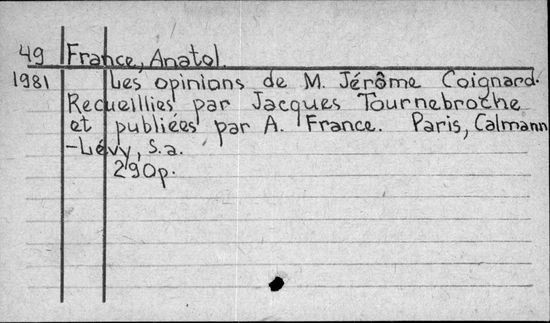 49 France, Anatol.
1981 Les opinions de M. Jérôme Coignard.
Recueillies par Jacques Tournebroche
et publiées par A. France. Paris, Calmann
-Lévy, s.a.
290p.